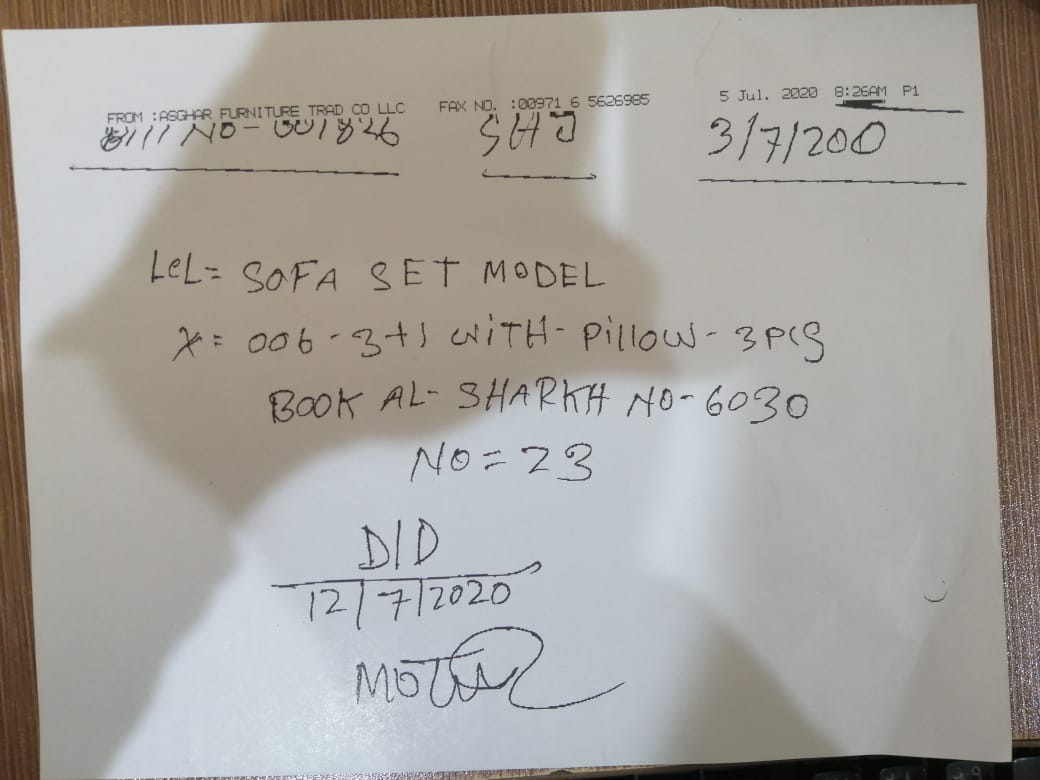 FROM :ASGHAR FURNITURE TRAD CO LLC FAX NO. :00971 6 5626985 5 Jul. 2020 8:26AM P1
NO-001826 SHJ 3/7/200
LeL= SOFA SET MODEL
X= 006-3+1 WiTH- Pillow- 3 PCS
BOOK AL- SHARKH NO-6030
NO=23
D/D
12/7/2020